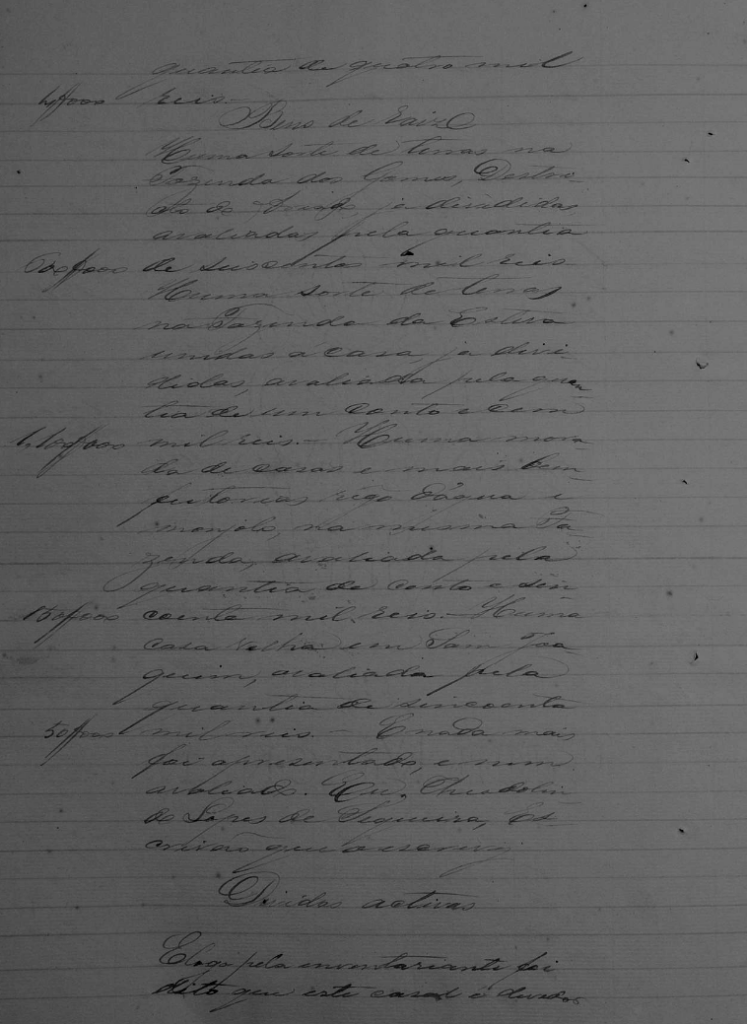 quantia de quatro mil
4$000 reis.
Bens de Raiz
Huma sorte de terras na
Fazenda dos Gomes, Destric-
to do já divididas
avaliadas pela quantia
600$000 de seiscentos mil reis
Huma sorte de terras
na Fazenda da Estiva
unidas a casa ja divi
didas, avaliada pela quan
tia de um conto e cem
1.100$000 mil reis. - Huma mora
da de casas e mais bem
feitorias, rego d'agua e
monjolo, na mesma Fa-
zenda, avaliada pela
quantia de cento e sin
150$000 coenta mil reis. - Huma
casa velha em Sam Joa
quim, avaliada pela
quantia de sincoenta
50$000 mil reis. - E nada mais
foi apresentado, e nem
avaliado. Eu,
do Lopes de Siqueira, Es-
crivão que o escrevy
Dividas activas
E logo pela inventariante foi
dito que este casal é